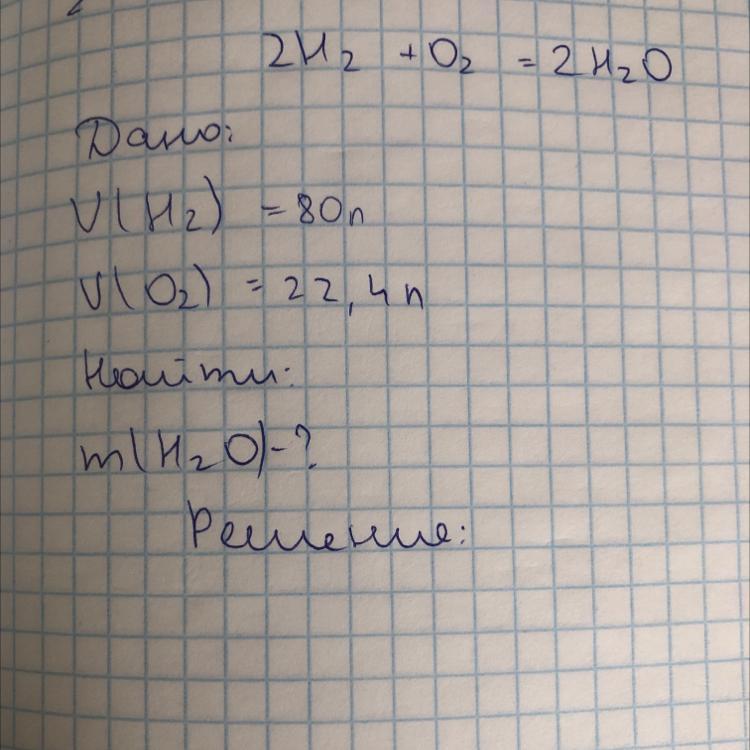 2H₂ + O₂ = 2H₂O
Дано:
V(H₂) = 80л
V(O₂) = 22,4л
Найти:
m(H₂O)-?
Решение: